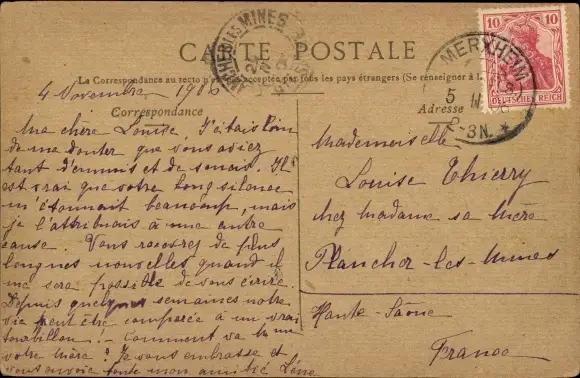 CARTE POSTALE
La Correspondance au recto n'est pas acceptée par tous les pays étrangers (Se renseigner à
4 Novembre 1906
Correspondance
Adresse
Ma chère Louise, J'étais loin
de me douter que vous aviez
tant d'ennuis et de soucis. Il
est vrai que votre long silence
m'étonnait beaucoup, mais
je l'attribuais à une autre
cause. Vous recevrez de plus
longues nouvelles quand il
me sera possible de vous écrire.
Depuis quelques semaines notre
vie peut être comparée à un vrai
tourbillon! - Comment va
votre mère? Je vous embrasse et
vous envoie toute mon amitié Léna
Mademoiselle
Louise Thierry
chez Madame sa Mère
Plancher-les-Mines
Haute-Saône
France
PLANCHER-LES-MINES
MERXHEIM
5
2-3N.
10 10
DEUTSCHES REICH